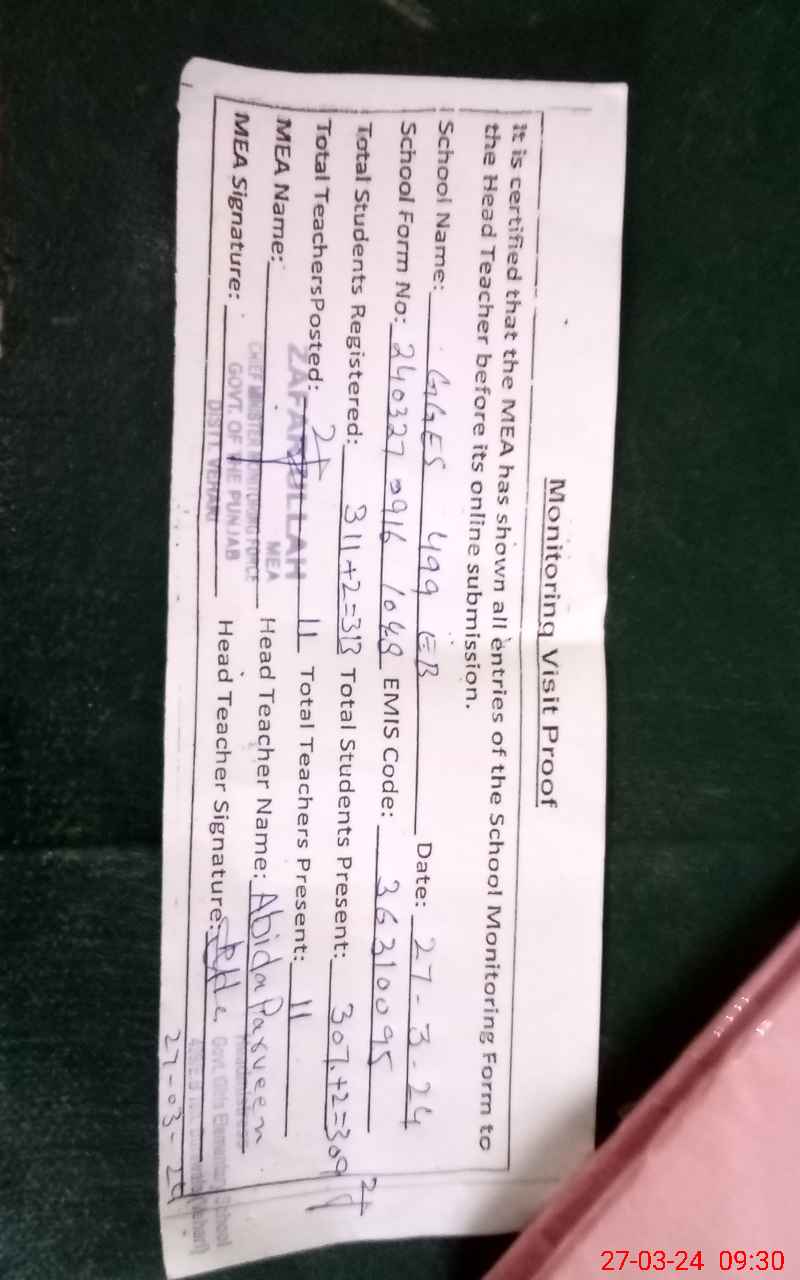 Monitoring Visit Proof
It is certified that the MEA has shown all entries of the School Monitoring Form to
the Head Teacher before its online submission.
School Name: GGES 499 EB Date: 27-3-24
School Form No: 240327 0916 1048 EMIS Code: 36310095
Total Students Registered: 311+2=313 Total Students Present: 307+2=309
Total TeachersPosted: 11 Total Teachers Present: 11
MEA Name: ZAFARULLAH MEA Head Teacher Name: Abida Parveen
CHIEF MINISTER MONITORING FORCE
MEA Signature: Head Teacher Signature:
GOVT. OF THE PUNJAB
DISTT. VEHARI
Headmistress
Govt. Girls Elementary School
27-03-24
27-03-24 09:30